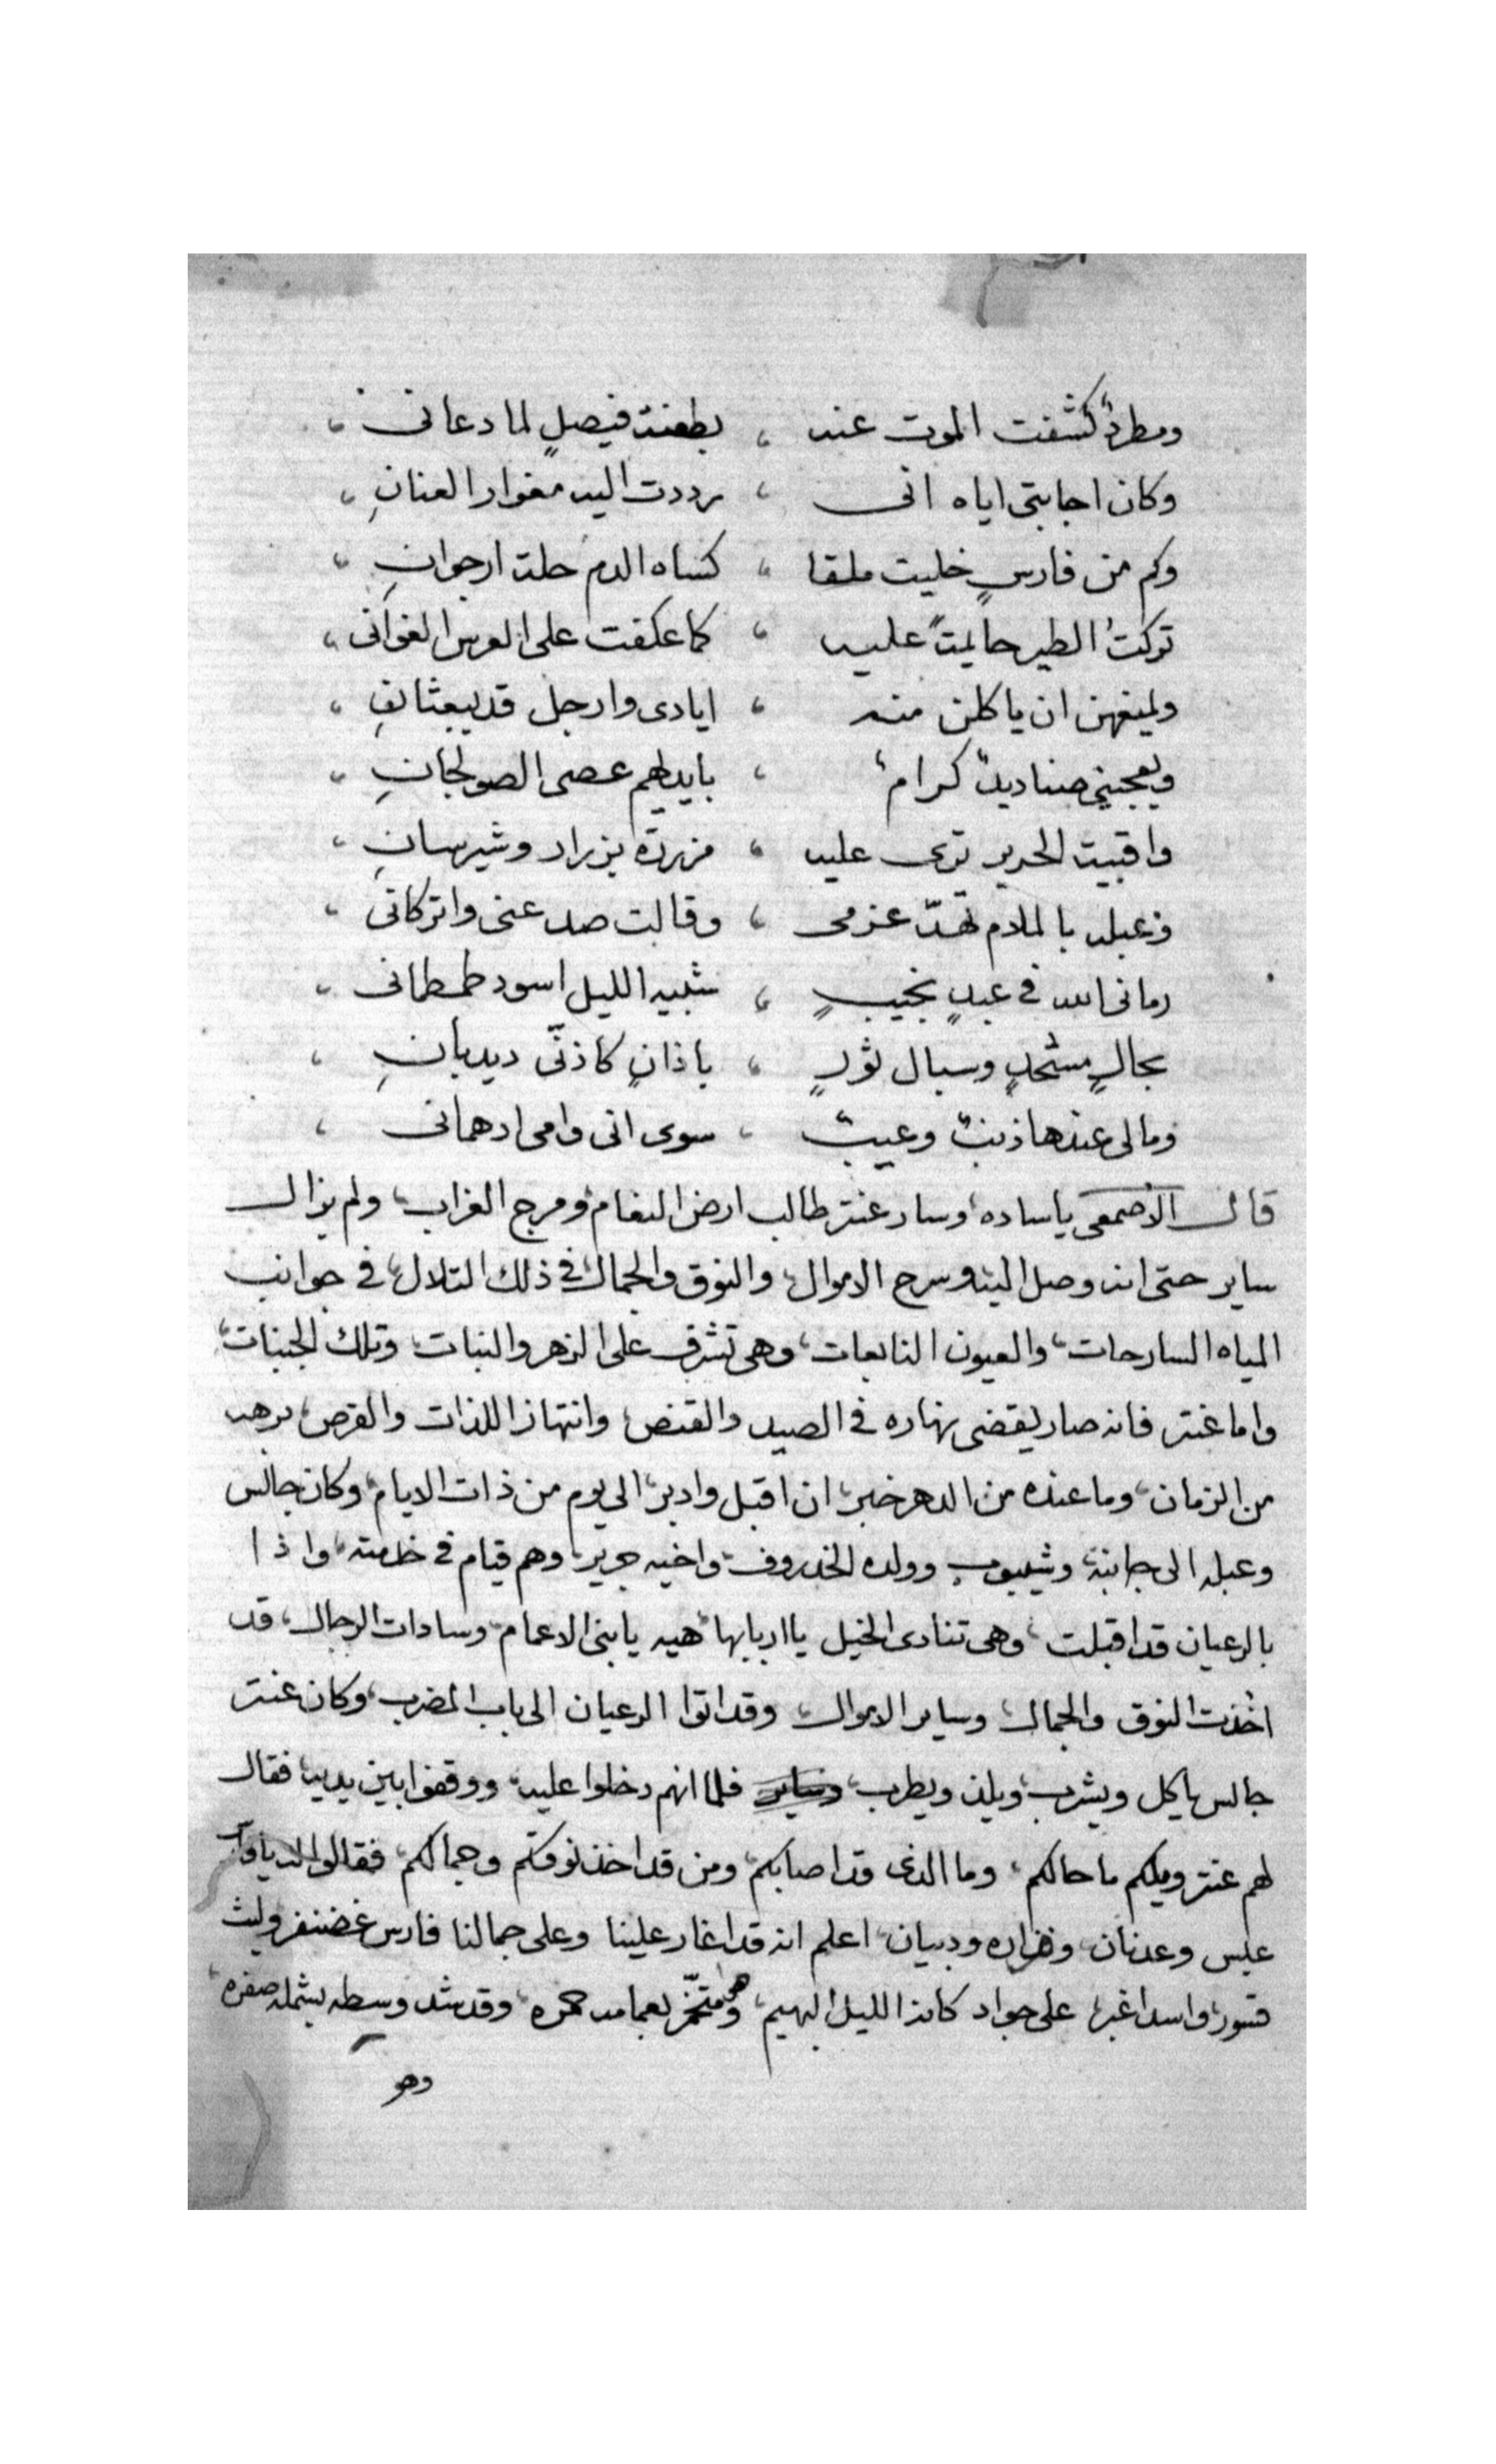 ومطردٌ كشفت الموت عنه ، بطعنة فيصلٍ لما دعانى ،
وكان اجابتى اياه انى ، رددت اليه مغوار العنانِ ،
وكم من فارسٍ خليت ملقا ، كساه الدم حلة ارجوانِ ،
تركتُ الطير حايمةً عليه ، كما عكفت على العرس الغوانى ،
وليمنعهن ان ياكلن منه ، ايادى وارجل قد يبعثانِ ،
ويعجبنى صناديدٌ كرامٌ ، بايديهم عصى الصولجانِ ،
واقبية الحرير ترى عليه ، مزردة بزراد وشيرسانِ ،
وعبله بالملام تهدّ عزمى ، وقالت صد عنى واتركانى ،
رمانى الله فى عبدٍ نجيبٍ ، شبيه الليل اسود طمطمانى ،
بجالٍ مسْحلٍ وسبال ثورٍ ، باذانٍ كاذنّى ديدبانِ ،
ومالى عندها ذنبٌ وعيبٌ ، سوى انى وامى ادهمانى ،
قال الاصمعى ياساده، وسار عنتر طالب ارض النعام، ومرج الغراب، ولم يزال
ساير حتى انه وصل اليه، وسرح الاموال، والنوق والجمال، فى ذلك التلال، فى جوانب
المياه السارحات، والعيون النابعات، وهى تشرف على الزهر والنبات، وتلك الجنبات،
واما عنتر فانه صار يقضى نهاره فى الصيد والقنص، وانتهاز اللذات والفرص، برهه
من الزمان، وما عنده من الدهر خبر، ان اقبل وادبر، الى يوم من ذات الايام، وكان جالس
وعبله الى جانبه، وشيبوب وولده الخذروف، واخيه جرير، وهم قيام فى خدمته، واذا
بالرعيان قد اقبلت، وهى تنادى الخيل يا اربابها، هيه يا بنى الاعمام، وسادات الرجال، قد
اخذت النوق والجمال، وساير الاموال، وقد اتوا الرعيان الى باب المضرب، وكان عنتر
جالس ياكل ويشرب، ويلذ ويطرب، وساير فلما انهم دخلوا عليه، ووقفوا بين يديه، فقال
لهم عنتر ويلكم ما حالكم، وما الذى قد اصابكم، ومن قد اخذ نوقكم وجمالكم، فقالوا له يا
عبس وعدنان، وفزاره ودبيان، اعلم انه قد اغار علينا وعلى جمالنا فارس غضنفر وليث
قسور، واسد اغبر، على جواد كانه الليل البهيم، وهو متخمّر بعمامه حمره، وقد شد وسطه بشمله صفره،
وهو